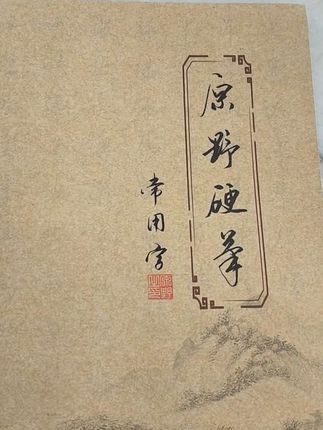 原野硬笔
常用字